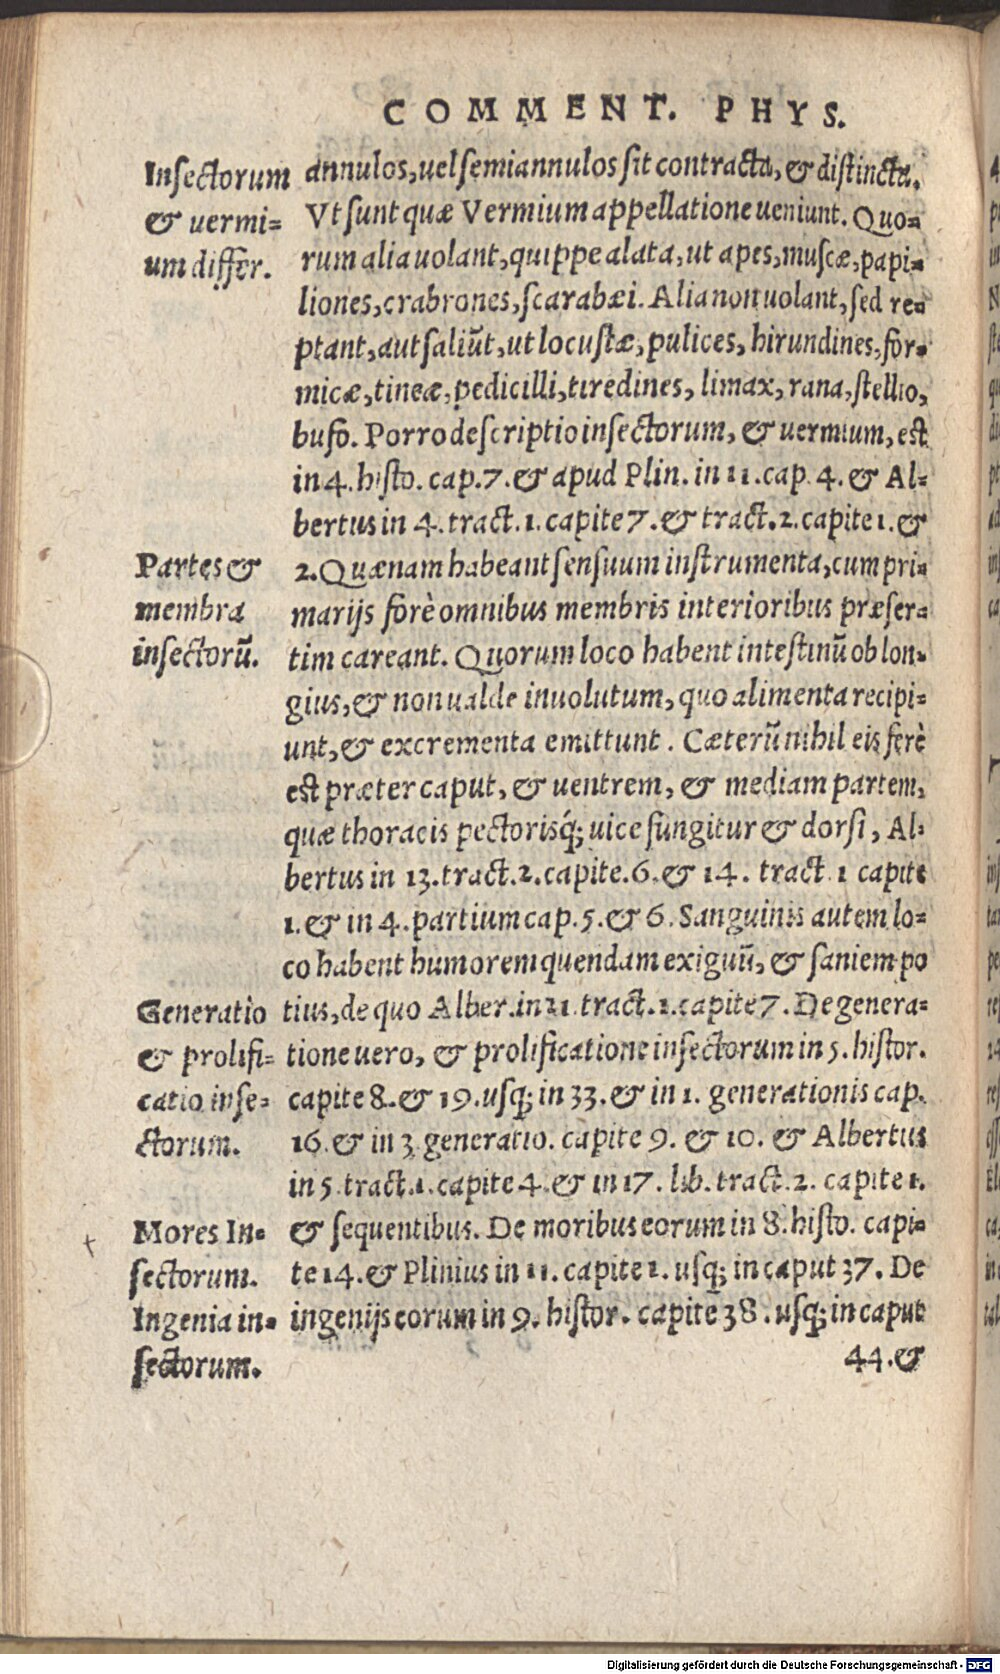 COMMENT. PHYS.
Insectorum
& vermi=
um differ.
annulos, uel semiannulos sit contracta, & distincta.
Vt sunt quæ Vermium appellatione ueniunt. Quo=
rum alia uolant, quippe alata, ut apes, muscæ, papi=
liones, crabrones, scarabæi. Alia non uolant, sed re=
ptant, aut saliũt, ut locustæ, pulices, hirundines, for=
micæ, tineæ, pedicilli, teredines, limax, rana, stellio,
bufo. Porro descriptio insectorum, & uermium, est
in 4. histo. cap. 7. & apud Plin. in 11. cap. 4. & Al=
bertus in 4. tract. 1. capite 7. & tract. 2. capite 1. &
Partes &
membra
insectorũ.
2. Quænam habeant sensuum instrumenta, cum pri=
marijs forè omnibus membris interioribus præser=
tim careant. Quorum loco habent intestinũ oblon=
gius, & non ualde inuolutum, quo alimenta recipi=
unt, & excrementa emittunt. Cæterũ nihil eis ferè
est præter caput, & uentrem, & mediam partem,
quæ thoracis pectorisq́; uice fungitur & dorsi, Al=
bertus in 13. tract. 2. capite. 6. & 14. tract. 1 capite
1. & in 4. partium cap. 5. & 6. Sanguinis autem lo=
co habent humorem quendam exiguũ, & saniem po
Generatio
& prolifi=
catio inse=
ctorum.
tius, de quo Alber. in 21. tract. 1. capite 7. De genera=
tione uero, & prolificatione insectorum in 5. histor.
capite 8. & 19. usq; in 33. & in 1. generationis cap.
16. & in 3. generatio. capite 9. & 10. & Albertus
in 5. tract. 1. capite 4. & in 17. lib. tract. 2. capite 1.
Mores In=
sectorum.
Ingenia in=
sectorum.
& sequentibus. De moribus eorum in 8. histo. capi=
te 14. & Plinius in 11. capite 1. usq; in caput 37. De
ingenijs eorum in 9. histor. capite 38. usq; in caput
44. &
Digitalisierung gefördert durch die Deutsche Forschungsgemeinschaft - DFG